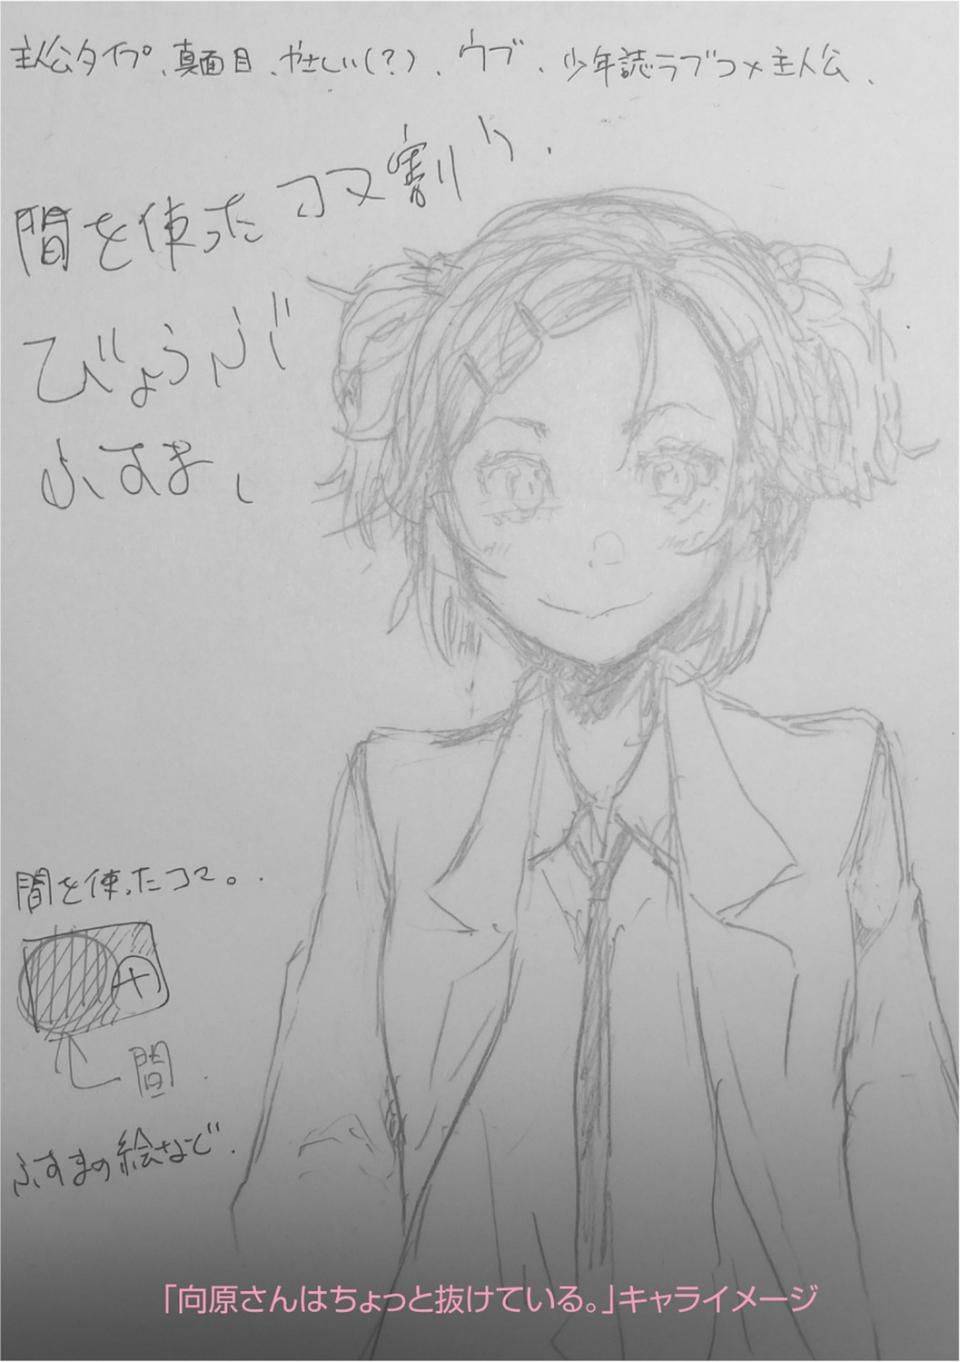 主人公タイプ、真面目、やさしい(?)、ウブ、少年誌ラブコメ主人公、
間を使ったコマ割り.
びょうぶ
ふすま、
間を使ったコマ。.
間.
ふすまの絵など.
「向原さんはちょっと抜けている。」キャライメージ